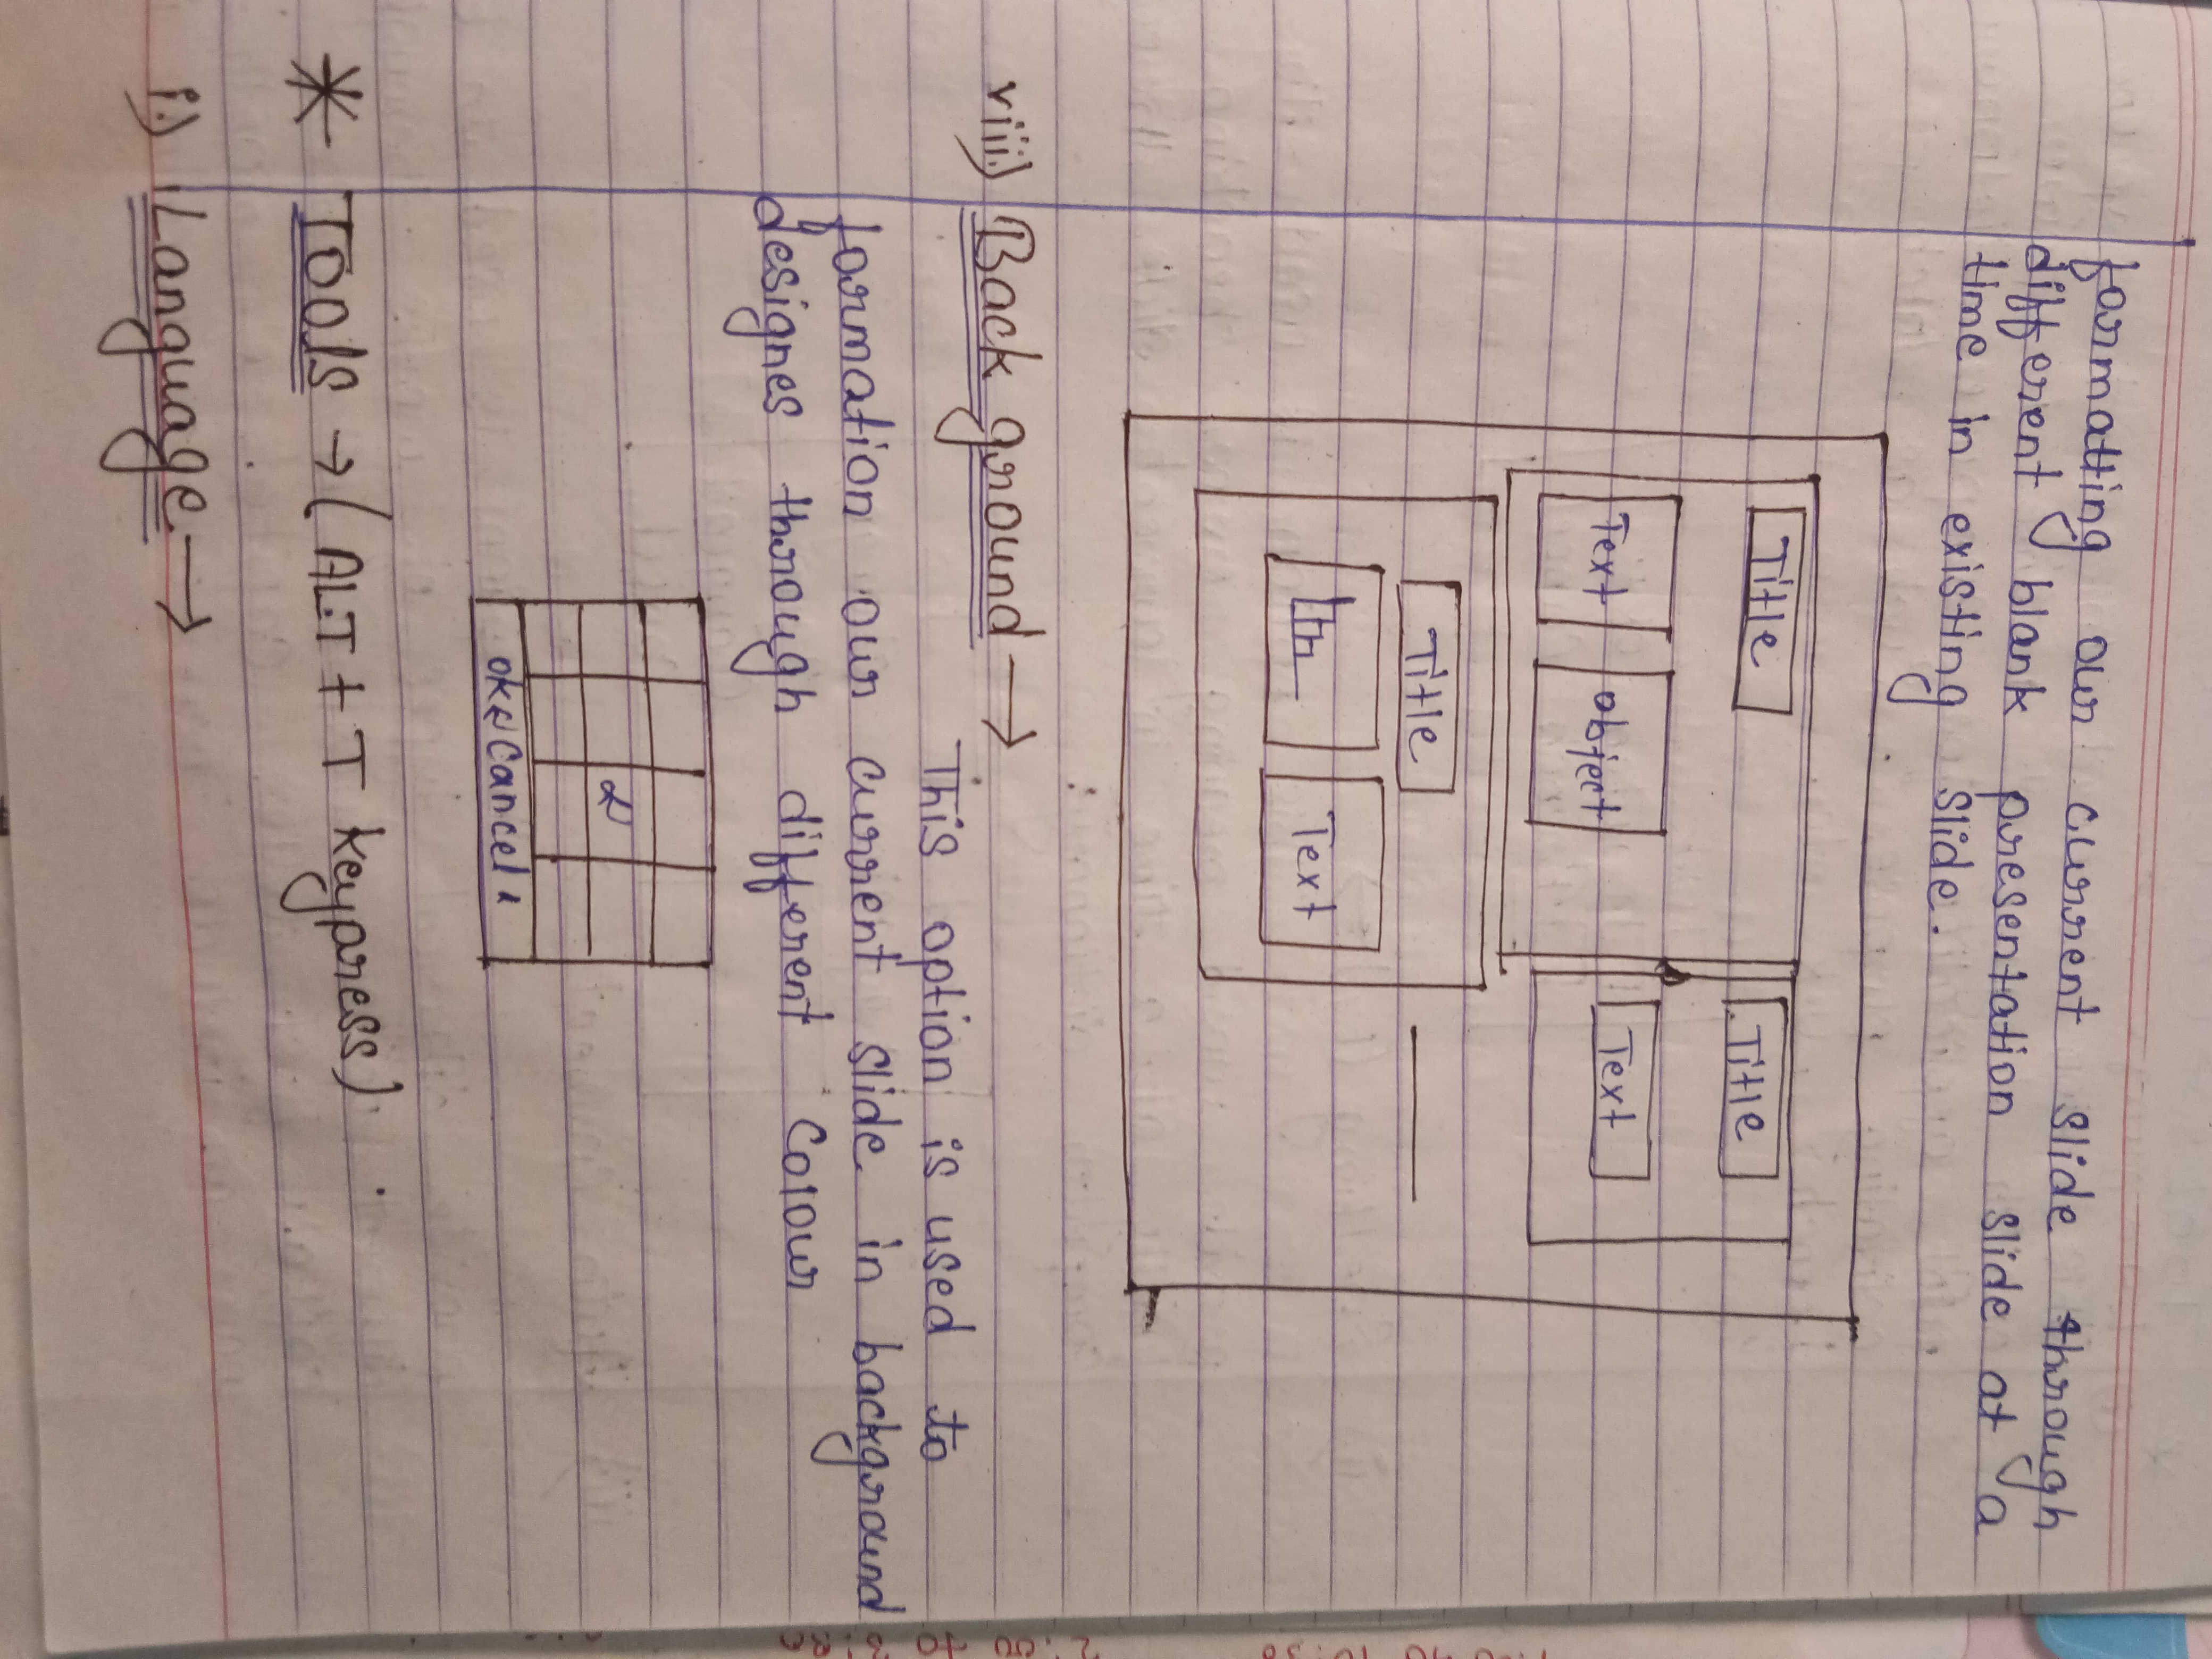 formatting our current slide through
different blank presentation slide at a
time in existing slide.
Title
Title
Text
object
Text
Title
Text
viii.) Back ground →
This option is used to
formation our current slide in background
designes through different colour
ok Cancel
* Tools → (ALT + T keypress)
i.) Language →